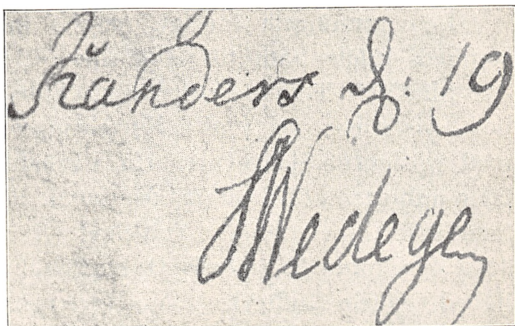 Randers d: 19
Wedege